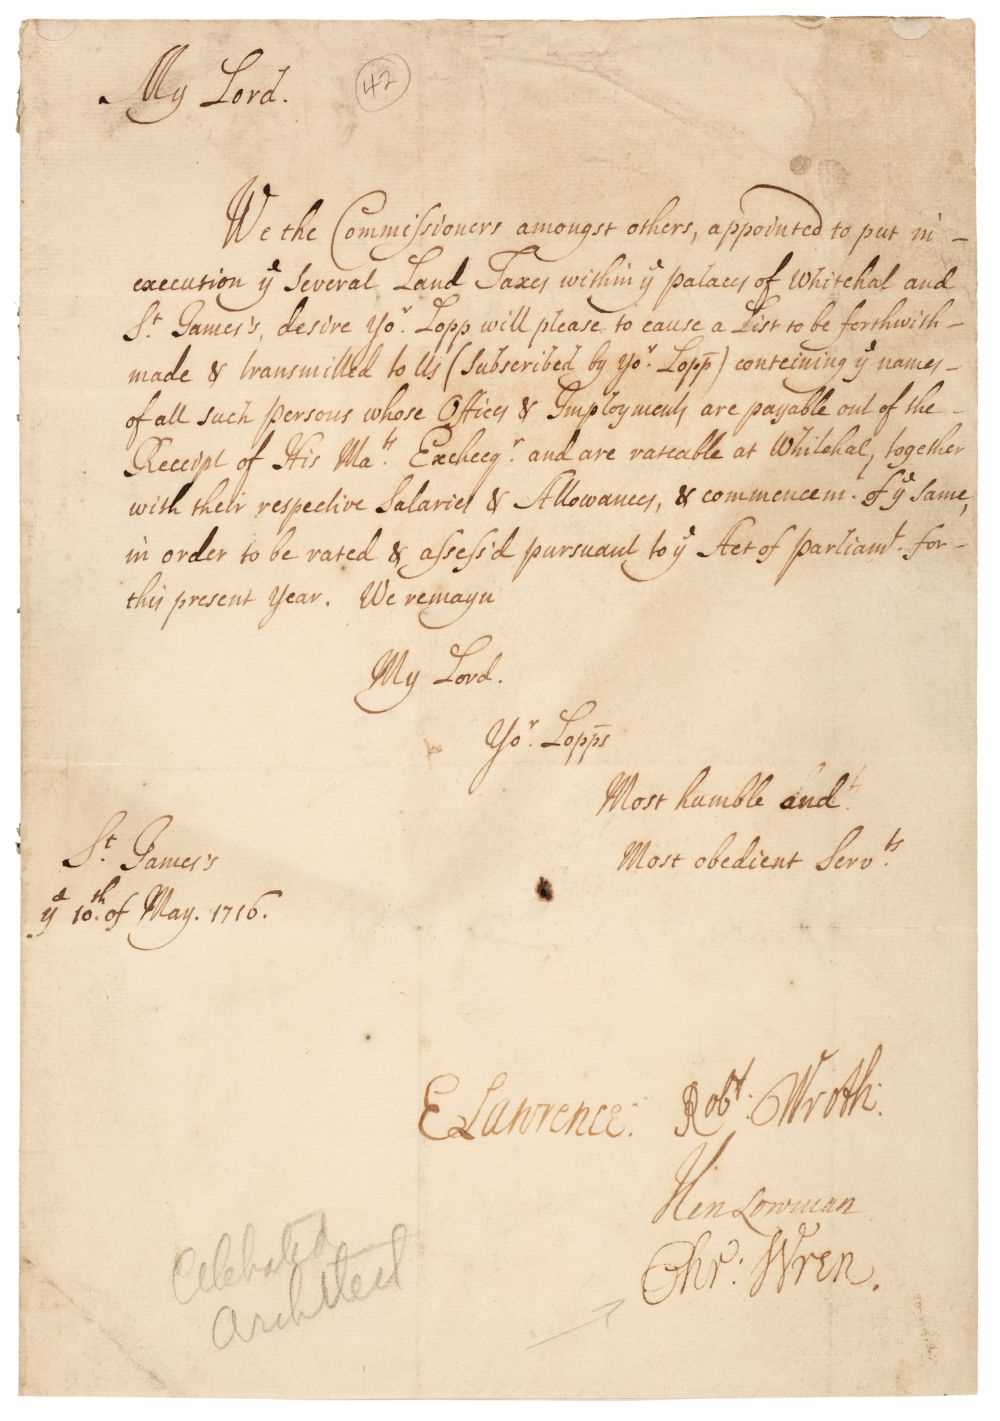 My Lord.
42
We the Commissioners amongst others, appointed to put in –
execution yᵉ Several Land Taxes within yᵉ palaces of Whitehal and
Sᵗ. James's, desire Yoʳ. Lopp will please to cause a List to be forthwith –
made & transmitted to Us (subscribed by yoʳ. Lopp) conteining yᵉ names –
of all such persons whose Offices & Imployments are payable out of the –
Receipt of His Maᵗˢ. Excheqʳ. and are rateable at Whitehal, together
with their respective Salaries & Allowances, & commencem. of yᵉ same,
in order to be rated & assess'd pursuant to yᵉ Act of parliamᵗ. for –
this present year. We remayn
My Lord.
Yoʳ. Lopps
Most humble and
Most obedient Servᵗˢ.
Sᵗ. James's
yᵉ 10ᵗʰ. of May. 1716.
E Lawrence. Robᵗ: Wroth:
Hen Lowman
Chr: Wren.
Celebrated
Architect